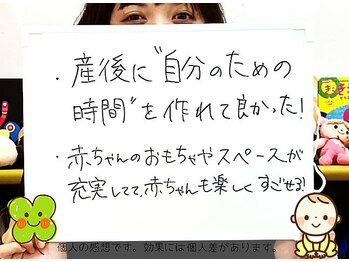 ・産後に"自分のための
時間"を作れて良かった!
・赤ちゃんのおもちゃやスペースが
充実してて、赤ちゃんも楽しくすごせる!
個人の感想です。効果には個人差があります。